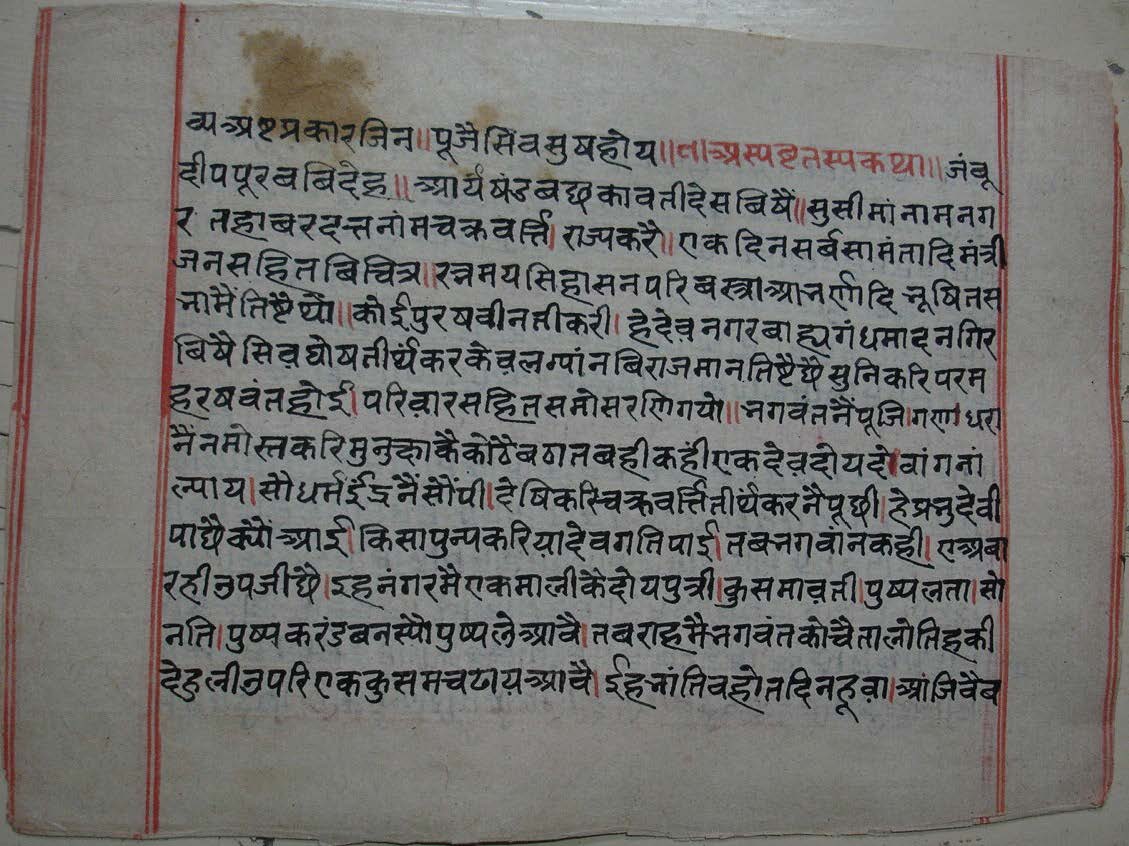 व्यअष्टप्रकारजिन॥पूजैसिवसुषहोय॥ताअस्पष्टतस्पकथा॥जंबू
दीपपूरबबिदेह॥आर्यषंडबछकावतीदेसबिषैं॥सुसीमांनामनग
र तहाबरदत्तनांमचक्रवर्त्ति।राज्यकरै॥एकदिनसर्बसामंतादिमंत्री
जनसहितबिचित्र॥रत्नमयसिंहासनपरिबस्त्राआभर्णादिभूषितस
भामैंतिष्टैथो॥कोईपुरषवीनतीकरी।हेदेवनगरबाह्यगंधमादनगिर
बिषैसिवघोषतीर्थंकरकेवलग्यांनबिराजमानतिष्टैछैसुनिकरिपरम
हरषवंतहोई।परिवारसहितसमोसरणिगयो॥भगवंतनैंपूजि।गणधरा
नैंनमोस्तकरिमुनु कोठैबैठातबहीकहींएकदेवदोयदेवांगनां
ल्याय।सौधर्मईंद्रनैंसौंपी।देषिकरिचक्रवर्त्तितीर्थंकरनैपूछी।हेप्रभुदेवी
पाछैक्यौंआई।किसापुन्यकरियादेवगतिपाई।तबभगवांनकही।एअबा
रहीउपजीछै।इहनंगरमैएकमालीकैदोयपुत्री।कुसमावती।पुष्पलता।सो
भति।पुष्पकरंडबनस्यौपुष्पलेआवै।तबराहमैभगवंतकोचैतालोतिहकी
देहुलीउपरिएककुसमचढायआवै।ईहभांतिबहोतदिनहूवा।आजिवैब